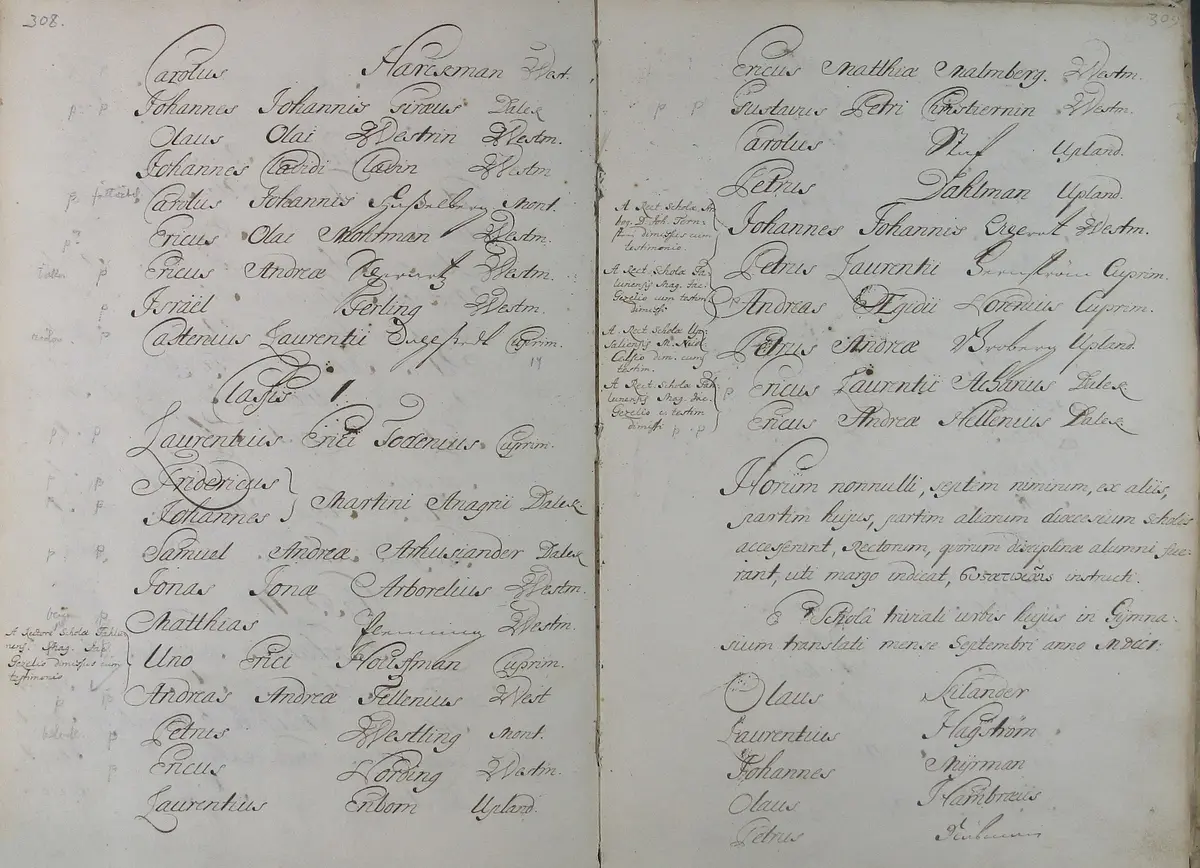 308.
Carolus Harckman West.
Johannes Johannis Giræus Dalek.
Olaus Olai Westrin Westm.
Johannes Claudii Westm
Carolus Johannis Mont.
Ericus Olai Mohtman Westm.
Ericus Andreæ Westm.
Israel Gerling Westm.
Castenius Laurentii Cuprim.
19
Classis 1
Laurentius Erici Todenius Cuprim.
Fridericus
Johannes } Martini Anagrii Dalek.
Samuel Andreæ Arhusiander Dalek
Jonas Jonæ Arborelius Westm.
Matthias Flemming Westm.
A Rectore Scholæ
Mag.
Gezelio dimissus cum
testimonio
Uno Erici Houffman Cuprim.
Andreas Andreæ Fellenius West
Petrus Westling Mont.
Ericus Nording Westm.
Laurentius Enbom Upland.
309
Ericus Matthiæ Malmberg. Westm.
Gustavus Petri Christiernin Westm.
Carolus Stuf Upland.
Petrus Dahlman Upland.
A Rect. Scholæ Ar
bog. D. Joh. Tern-
dimissus cum
testimonio.
Johannes Johannis Westm.
A Rect. Scholæ Fa-
lunensis Mag. Jac.
Gezelio cum testim
dimissi
Petrus Laurentii Bernström Cuprim.
Andreas Ægidii Lorenius Cuprim.
A Rect. Scholæ Up-
saliensis M. Nic.
Celsio dim. cum
testim.
Petrus Andreæ Broberg Upland
A Rect. Scholæ Fah-
lunensis Mag. Jac.
Gezelio c. testim
dimissi
Ericus Laurentii Albanus Dalek
Ericus Andreæ Hellenius Dalek
Horum nonnulli, septem nimirum, ex aliis,
partim hujus, partim aliarum dioecesium scholis
accesserunt, Rectorum, quorum disciplinæ alumni fue-
rant, uti margo indicat, instructi.
E Scholâ triviali urbis hujus in Gymna-
sium translati mense Septembri anno
Olaus Kilander
Laurentius Hagström
Johannes Myrman
Olaus Hambræus
Petrus